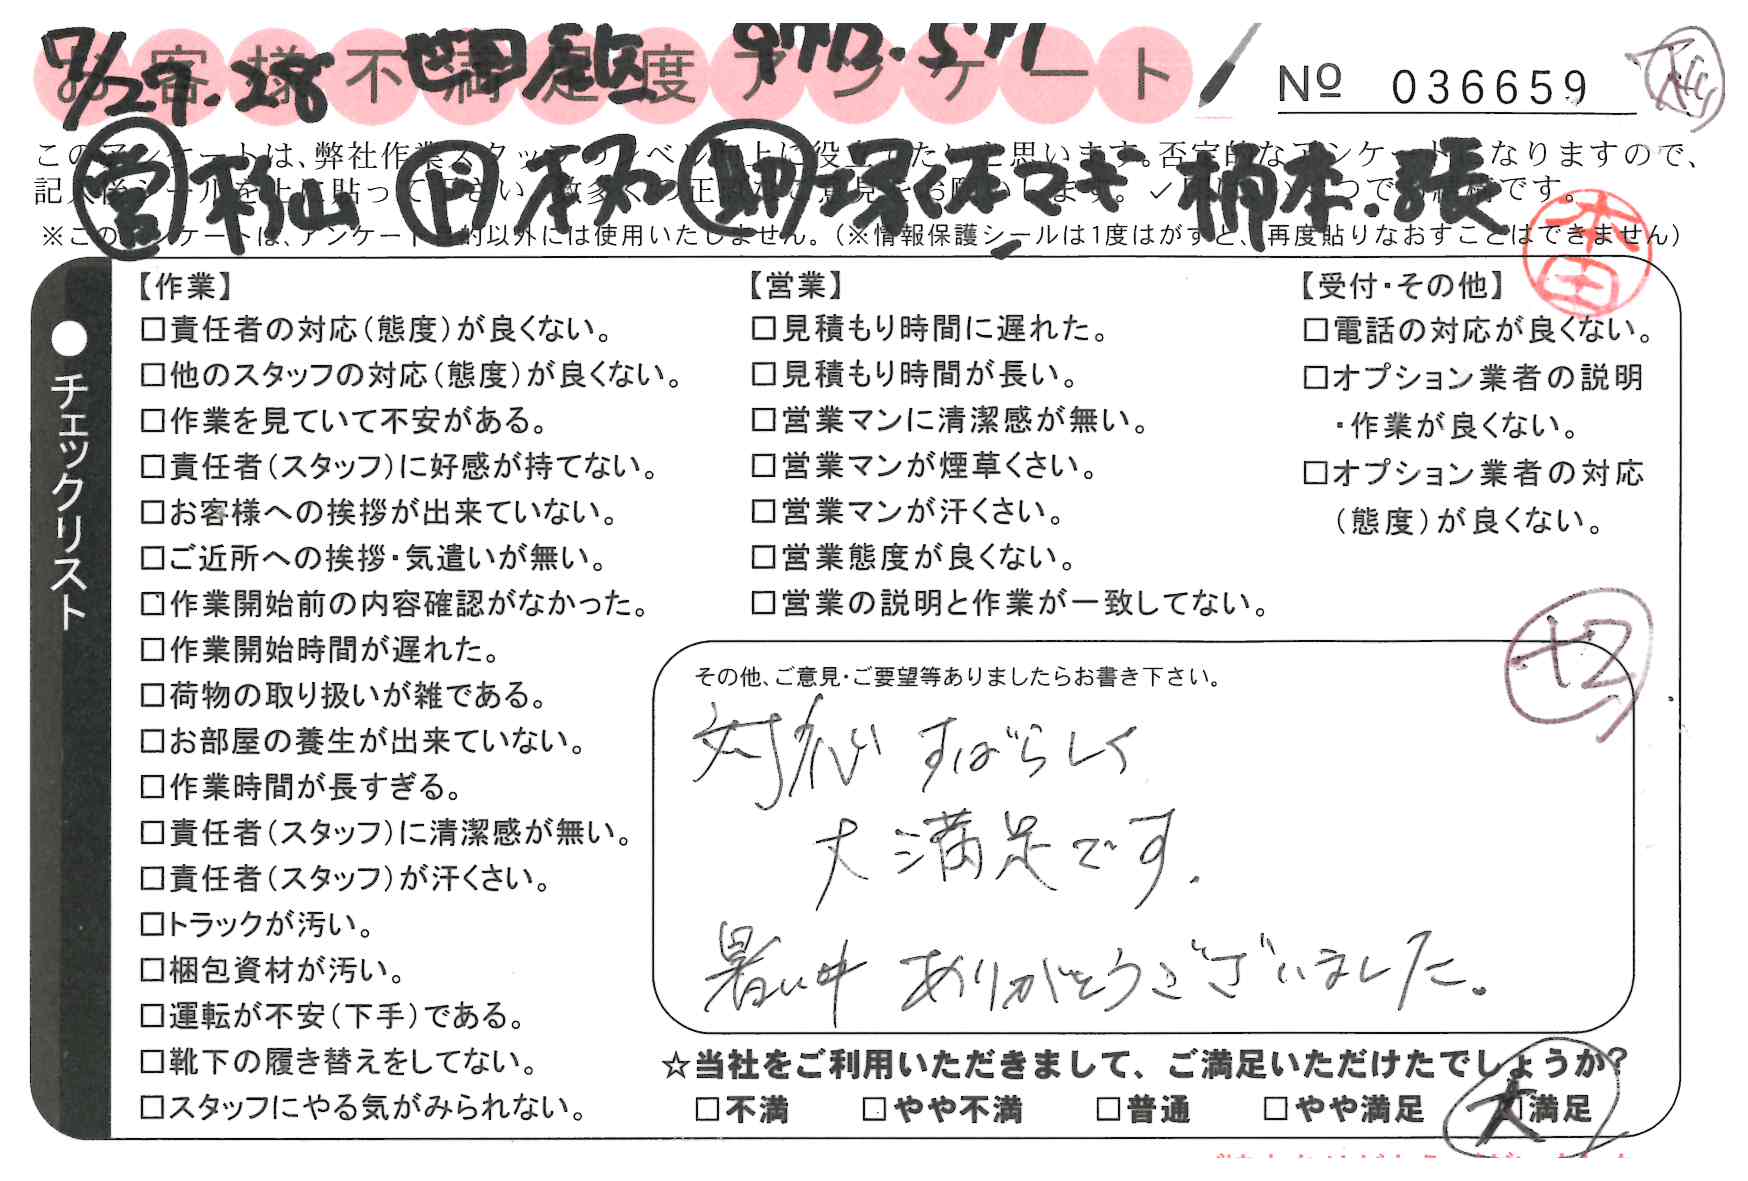 7/27.28 世田谷区
お客様不満足度アンケート
№ 036659
このアンケートは、弊社作業スタッフのレベル向上に役立てたいと思います。否定的なアンケートになりますので、
記入後シールを上に貼って下さい。数多くの正直なご意見をお願いします。
営 杉山 ド 本多 助 塚 マキ 柄本.張
※このアンケートは、アンケート目的以外には使用いたしません。(※情報保護シールは1度はがすと、再度貼りなおすことはできません)
本田
●チェックリスト
【作業】
□責任者の対応(態度)が良くない。
□他のスタッフの対応(態度)が良くない。
□作業を見ていて不安がある。
□責任者(スタッフ)に好感が持てない。
□お客様への挨拶が出来ていない。
□ご近所への挨拶・気遣いが無い。
□作業開始前の内容確認がなかった。
□作業開始時間が遅れた。
□荷物の取り扱いが雑である。
□お部屋の養生が出来ていない。
□作業時間が長すぎる。
□責任者(スタッフ)に清潔感が無い。
□責任者(スタッフ)が汗くさい。
□トラックが汚い。
□梱包資材が汚い。
□運転が不安(下手)である。
□靴下の履き替えをしてない。
□スタッフにやる気がみられない。
【営業】
□見積もり時間に遅れた。
□見積もり時間が長い。
□営業マンに清潔感が無い。
□営業マンが煙草くさい。
□営業マンが汗くさい。
□営業態度が良くない。
□営業の説明と作業が一致してない。
【受付・その他】
□電話の対応が良くない。
□オプション業者の説明
・作業が良くない。
□オプション業者の対応
(態度)が良くない。
その他、ご意見・ご要望等ありましたらお書き下さい。
対応すばらしく
大満足です.
暑い中 ありがとうございました。
☆当社をご利用いただきまして、ご満足いただけたでしょうか?
□不満 □やや不満 □普通 □やや満足 大 □満足